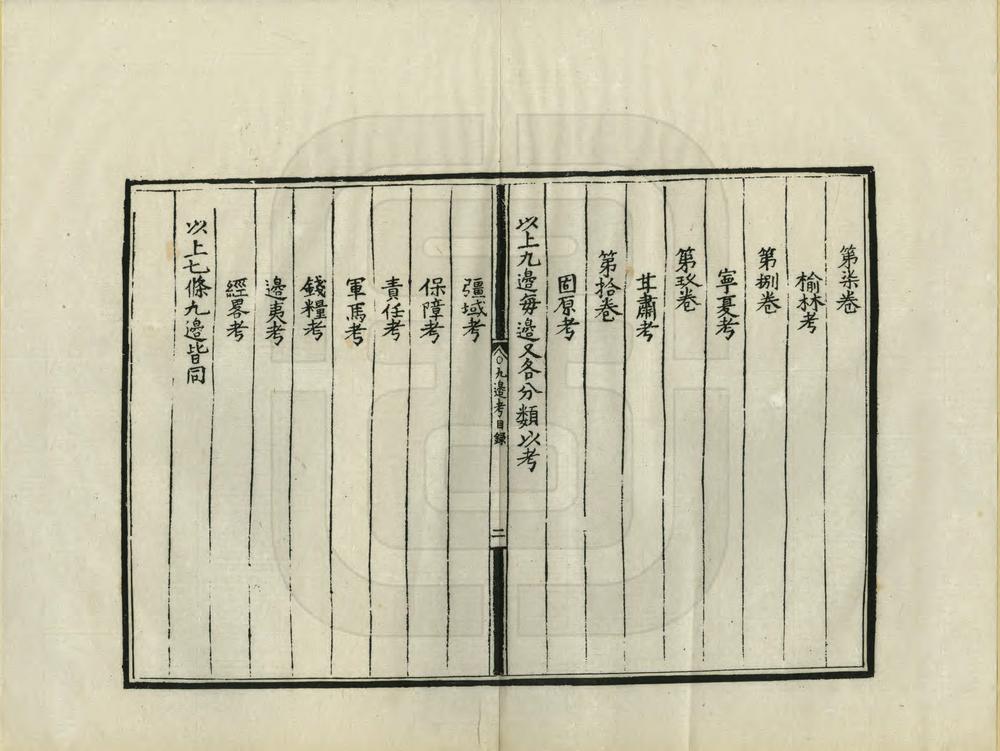 第柒卷
榆林考
第捌卷
寧夏考
第玖卷
甘肅考
第拾卷
固原考
以上九邊每邊又各分類以考
九邊考目録
二
疆域考
保障考
責任考
軍馬考
錢糧考
邊夷考
經畧考
以上七條九邊皆同